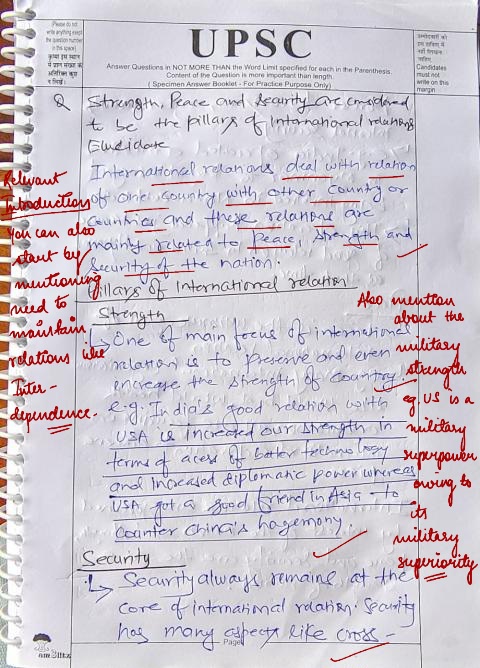 (Please do not write anything except the question number in this space)
कृपया इस स्थान में प्रश्न संख्या के अतिरिक्त कुछ न लिखें।
UPSC
Answer Questions in NOT MORE THAN the Word Limit specified for each in the Parenthesis.
Content of the Question is more important than length.
( Specimen Answer Booklet - For Practice Purpose Only)
उम्मीदवारों को इस हाशिए में नहीं लिखना चाहिए
Candidates must not write on this margin
Q Strength, Peace and security are considered
to be the pillars of International relations
Elucidate
International relations deal with relation
of one country with other country or
countries and these relations are
mainly related to Peace, strength and
security of the nation.
Pillars of International relation
Strength
One of main focus of international
relation is to preserve and even
increase the strength of country.
e.g. India's good relation with
USA is increased our strength in
terms of acess of bater technology
and increased diplomatic power whereas
USA got a good friend in Asia - to
counter China's hagemony.
Security
Security always remains at the
core of international relation. Security
has many aspects like cross -
Page
Relevant
Introduction
you can also
start by
mentioning
need to
maintain
relations like
Inter-
dependence.
Also mention
about the
military
strength
eg. US is a
military
superpower
owing to
its
military
superiority